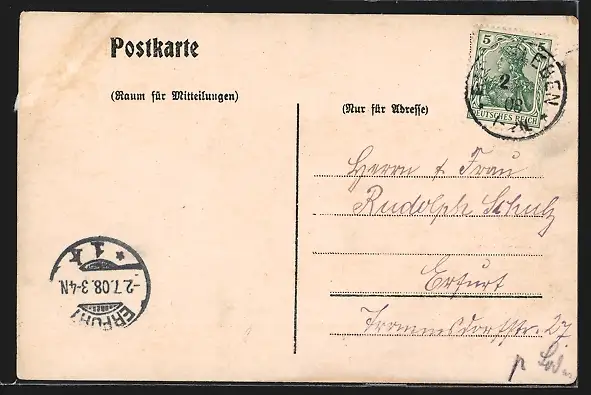 Postkarte
(Raum für Mitteilungen)
(Nur für Adresse)
5
DEUTSCHES REICH
EBEN
2
08
Herrn & Frau
Rudolph Schulz
Erfurt
Trommsdorfstr. 27
ERFURT
-2.7.08.3-4N
* 1 k